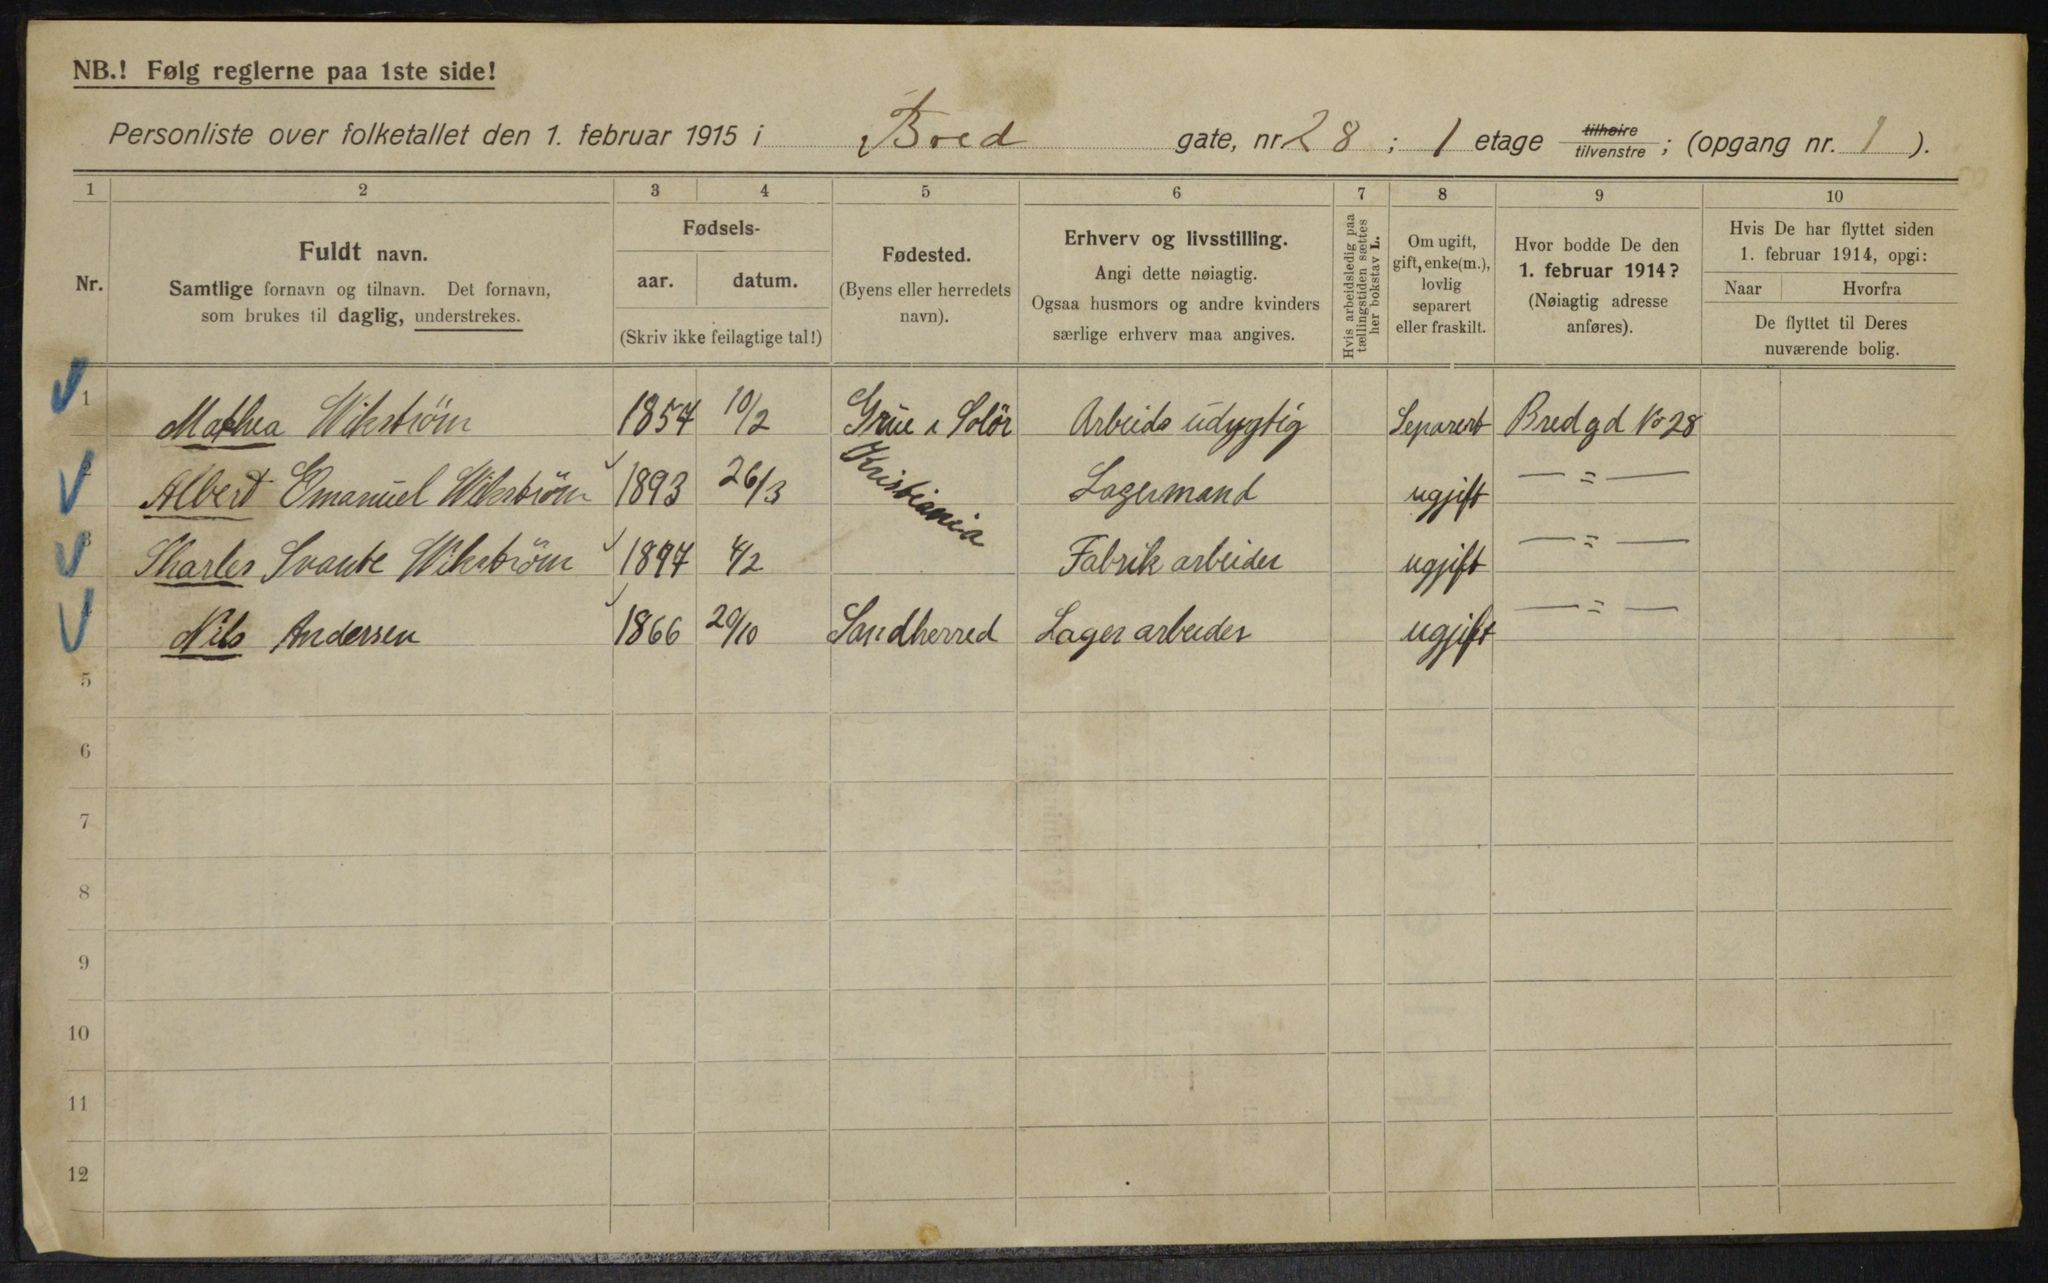 NB.! Følg reglerne paa 1ste side!
Personliste over folketallet den 1. februar 1915 i Bred gate, nr. 28 ; 1 etage tilhøire tilvenstre ; (opgang nr. 1 ).
1 2 3 4 5 6 7 8 9 10
Nr.
Fuldt navn.
Samtlige fornavn og tilnavn. Det fornavn,
som brukes til daglig, understrekes.
Fødsels-
aar. datum.
(Skriv ikke feilagtige tal!)
Fødested.
(Byens eller herredets
navn).
Erhverv og livsstilling.
Angi dette nøiagtig.
Ogsaa husmors og andre kvinders
særlige erhverv maa angives.
Hvis arbeidsledig paa
tællingstiden sættes
her bokstav L.
Om ugift,
gift, enke(m.),
lovlig
separert
eller fraskilt.
Hvor bodde De den
1. februar 1914?
(Nøiagtig adresse
anføres).
Hvis De har flyttet siden
1. februar 1914, opgi:
Naar Hvorfra
De flyttet til Deres
nuværende bolig.
1 Mathea Wikstrøm 1857 10/2 Grue i Solör Arbeids udygtig Separert Bredgd No 28
2 Albert Emanuel Wikstrøm 1893 26/3 Kristiania Lagermand ugjift — " —
3 Sharles Svante Wikstrøm 1897 4/2 Fabrik arbeider ugjift — " —
4 Nils Andersen 1866 20/10 Sandherred Lager arbeider ugjift — " —
5
6
7
8
9
10
11
12